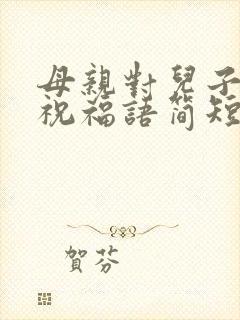 母親對兒子
祝福語簡短
賀芬